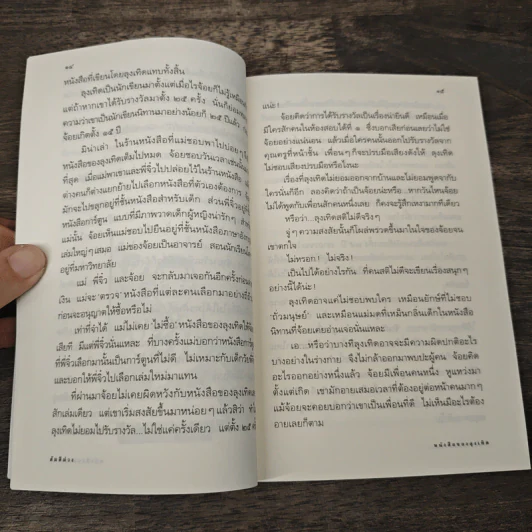 ๑๔
หนังสือที่เขียนโดยลุงเทิดแทบทั้งสิ้น
ลุงเทิดเป็นนักเขียนมาตั้งแต่เมื่อไรจ้อยก็ไม่รู้เหมือน
แต่ถ้าหากเขาได้รับรางวัลมาตั้ง ๒๕ ครั้ง นั่นก็ย่อม
ความว่าเขาเป็นนักเขียนนิทานมาอย่างน้อยก็ ๒๕ ปีแล้ว
จ้อยเกิดตั้ง ๑๕ ปี
มิน่าเล่า ในร้านหนังสือที่แม่ชอบพาไปบ่อยๆ
หนังสือของลุงเทิดเต็มไปหมด จ้อยชอบวันเวลาเช่นนั้น
ที่สุด เมื่อแม่พาเขาและพี่จิ๋วไปปล่อยไว้ในร้านหนังสือ
ต่างคนก็ต่างแยกย้ายไปเลือกหนังสือที่ตัวเองต้องการ
มักจะไปขลุกอยู่ที่ชั้นหนังสือสำหรับเด็ก ส่วนพี่จิ๋วอยู่
หนังสือการ์ตูน แบบที่มีภาพวาดเด็กผู้หญิงน่ารักๆ
แม่นั้น จ้อยเห็นแม่ชอบไปยืนอยู่ที่ชั้นหนังสือภาษาอังกฤษ
เล่มใหญ่ๆ เสมอ แม่ของจ้อยเป็นอาจารย์ สอนนักเรียน
อยู่ที่มหาวิทยาลัย
แม่ พี่จิ๋ว และจ้อย จะกลับมาเจอกันอีกครั้งก่อน
เงิน แม่จะ 'ตรวจ' หนังสือที่แต่ละคนเลือกมาอย่าง
ก่อนจะอนุญาตให้ซื้อหรือไม่
เท่าที่จำได้ แม่ไม่เคย 'ไม่ซื้อ' หนังสือของลุงเทิดให้
เสียที มีแต่พี่จิ๋วนั่นแหละ ที่บางครั้งแม่บอกว่าหนังสือการ์ตูน
ที่พี่จิ๋วเลือกมานั้นเป็นการ์ตูนที่ไม่ดี ไม่เหมาะกับเด็ก
และบอกให้พี่จิ๋วไปเลือกเล่มใหม่มาแทน
ที่ผ่านมาจ้อยไม่เคยผิดหวังกับหนังสือของลุงเทิด
สักเล่มเดียว แต่เขาเริ่มสงสัยขึ้นมาหน่อยๆ แล้วสิว่า
ลุงเทิดไม่ยอมไปรับรางวัล...ไม่ใช่แค่ครั้งเดียว แต่ตั้ง ๒๕
๑๕
แน่ะ!
จ้อยคิดว่าการได้รับรางวัลเป็นเรื่องน่ายินดี เหมือนเมื่อ
มีใครสักคนในห้องสอบได้ที่ ๑ ซึ่งบอกเสียก่อนเลยว่าไม่ใช่
จ้อยอย่างแน่นอน แล้วเมื่อใครคนนั้นออกไปรับรางวัลจาก
คุณครูที่หน้าชั้น เพื่อนๆ ก็จะปรบมือเสียงดังให้ ลุงเทิด
ไม่ชอบเสียงปรบมือหรือไงนะ
เรื่องที่ลุงเทิดไม่ยอมออกจากบ้านและไม่ยอมพูดจากับ
ใครนั่นก็อีก ลองคิดว่าถ้าเป็นจ้อยน่ะหรือ...หากวันไหนจ้อย
ไม่ได้พูดกับเพื่อนสักคนหนึ่งเลย ก็คงจะรู้สึกเหงามากทีเดียว
หรือว่า...ลุงเทิดสติไม่ดีจริงๆ
จู่ๆ ความสงสัยนั้นก็โผล่พรวดขึ้นมาในใจของจ้อยจน
เขาตกใจ
ไม่หรอก! ไม่จริง!
เป็นไปได้อย่างไรกัน ที่คนสติไม่ดีจะเขียนเรื่องสนุกๆ
อย่างนี้ได้น่ะ!
ลุงเทิดอาจแค่ไม่ชอบพบใคร เหมือนยักษ์ที่ไม่ชอบ
'ถั่วมนุษย์' และเหมือนแม่มดที่เหม็นกลิ่นเด็กในหนังสือ
นิทานที่จ้อยเคยอ่านเจอนั่นแหละ
เอ...หรือว่าบางทีลุงเทิดอาจจะมีความผิดปกติอะไร
บางอย่างในร่างกาย จึงไม่กล้าออกมาพบปะผู้คน จ้อยคิด
อะไรออกอย่างหนึ่งแล้ว จ้อยมีเพื่อนคนหนึ่ง หูแหว่งมา
ตั้งแต่เกิด เขามักอายเสมอเวลาที่ต้องอยู่ต่อหน้าคนมากๆ
แม้จ้อยจะคอยบอกว่าเขาเป็นเพื่อนที่ดี ไม่เห็นมีอะไรต้อง
อายเลยก็ตาม
หนังสือของลุงเทิด